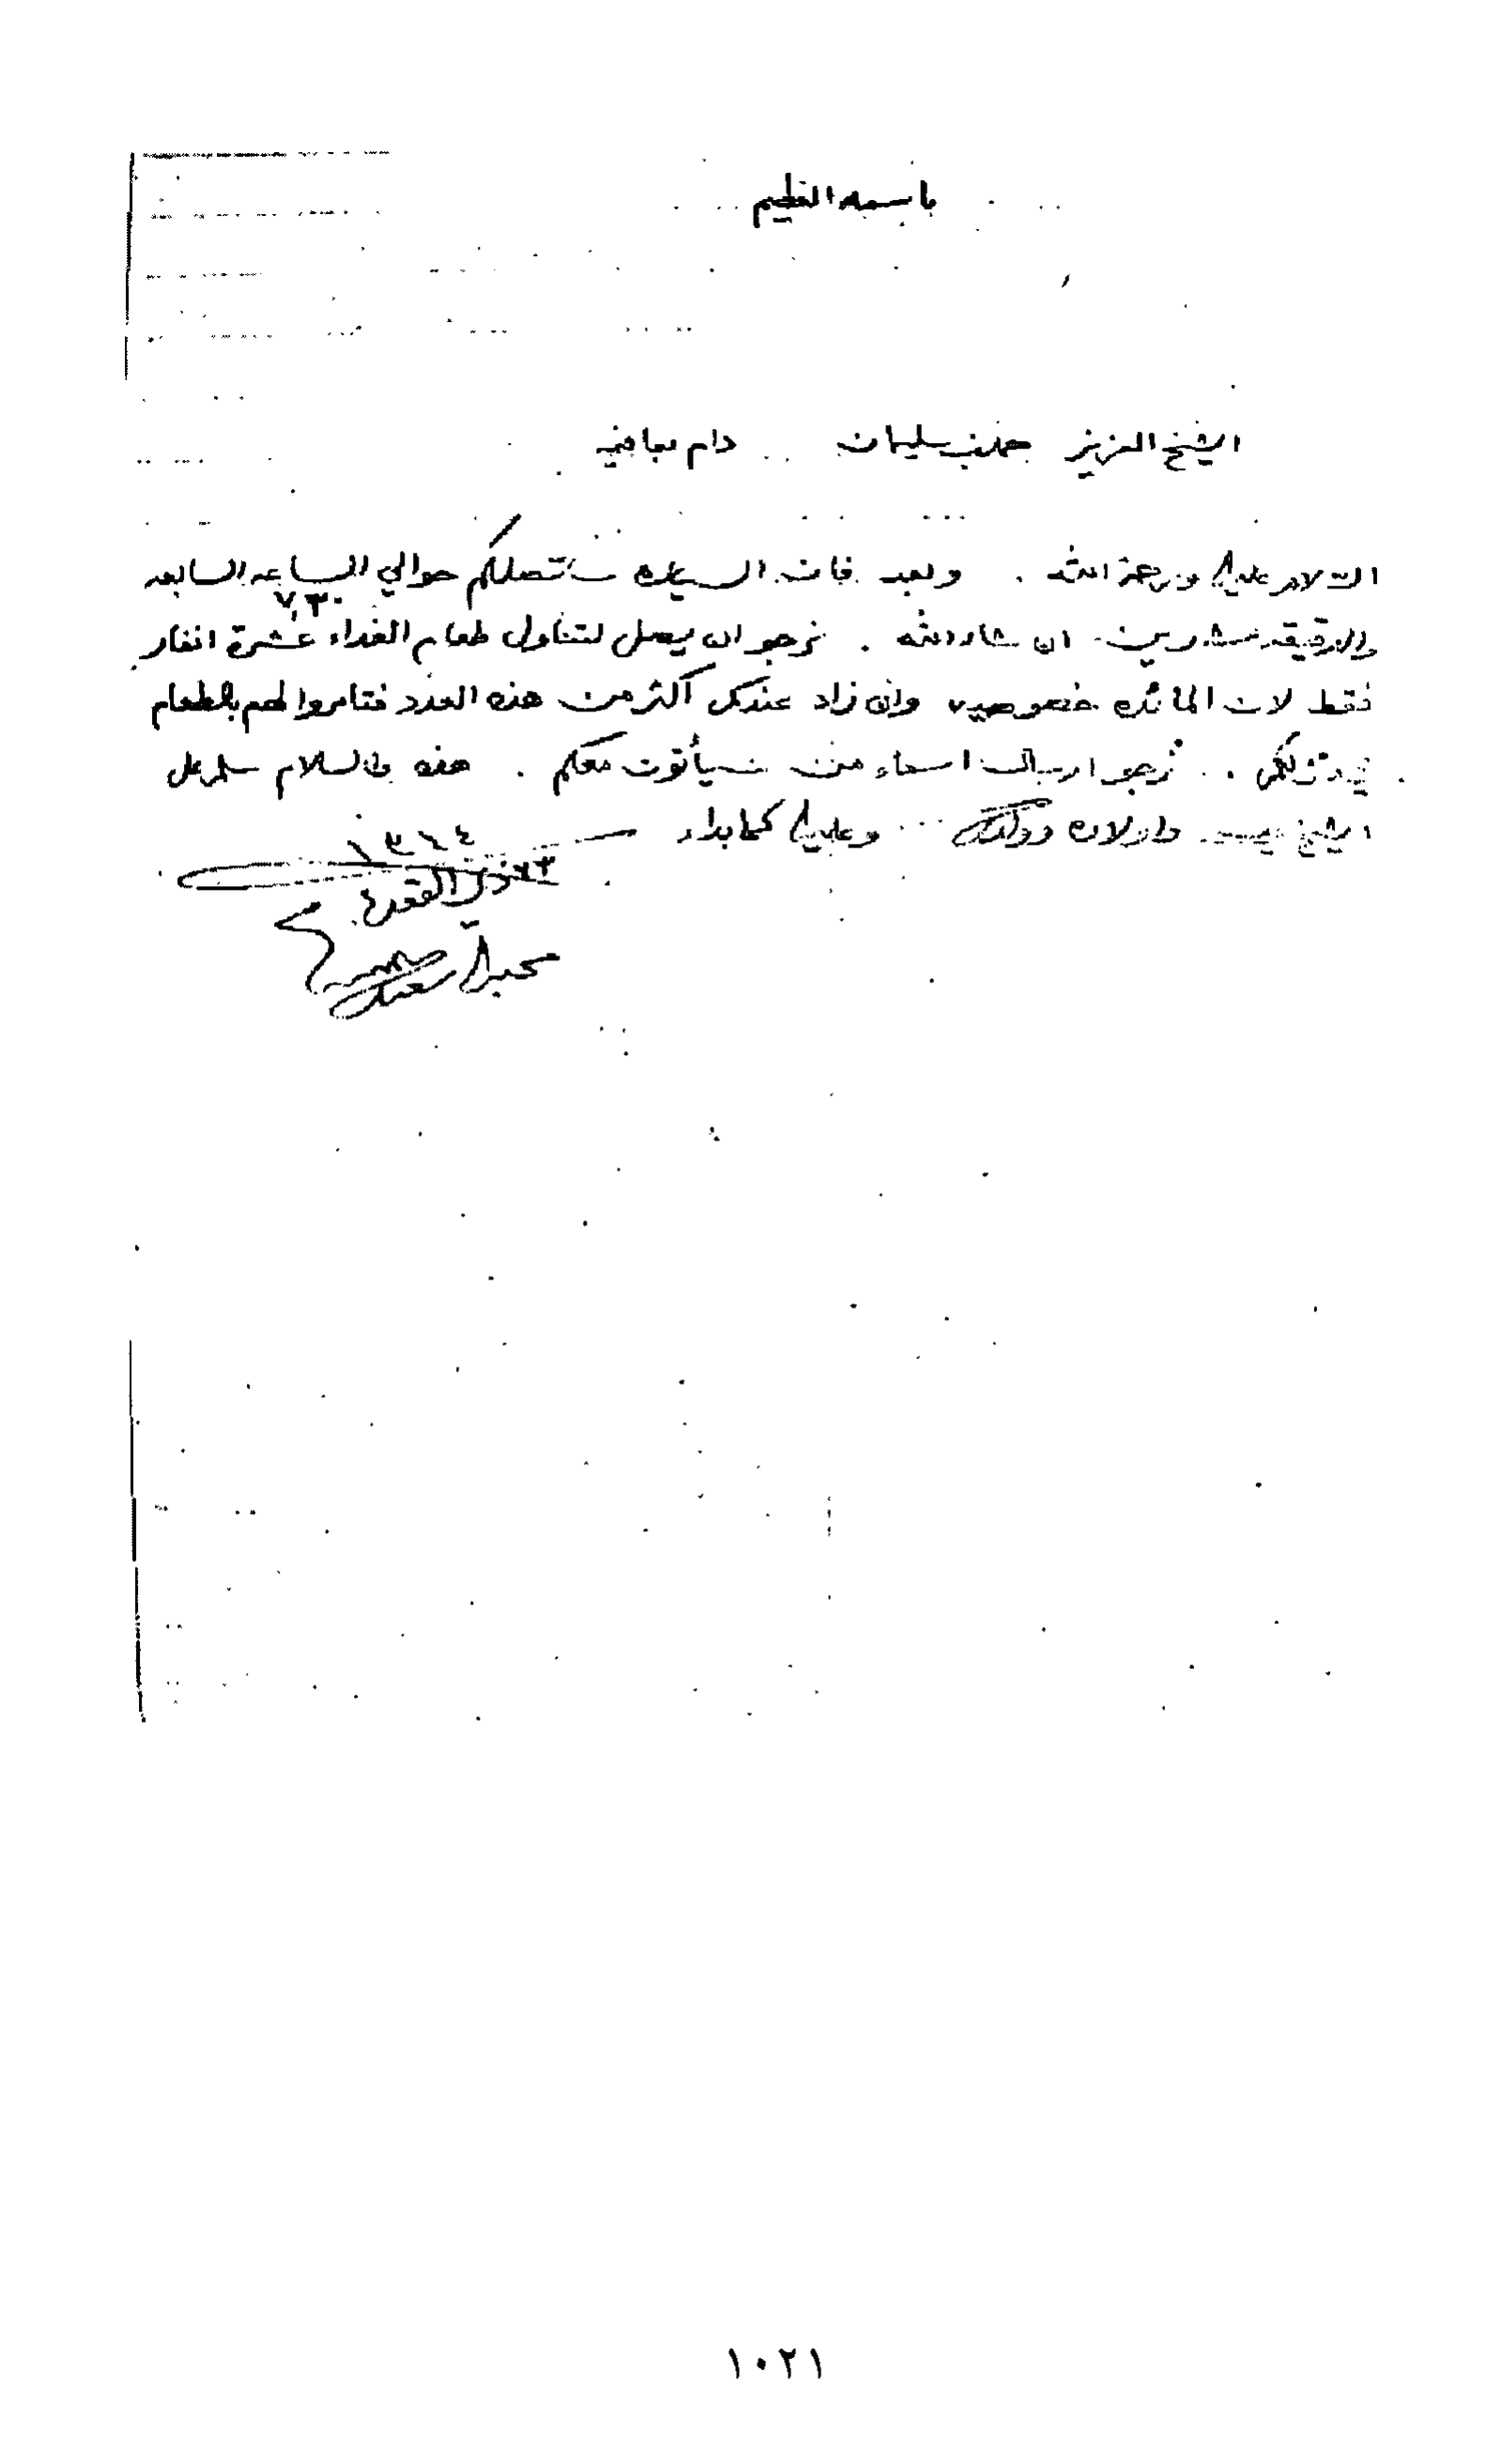 باسمه العظيم
الشيخ العزيز حمد بن سليمان دام معافى
السلام عليكم ورحمة الله . وبعد فان السياره ستصلكم حوالي الساعه السابعه
٧,٣٠
والدقيقه عشرين ان شاء الله . نرجو ان يصل لتناول طعام الغداء عشرة انفار
فقط لان المائده خصوصيه وان زاد عندكم اكثر من هذه العدد فتامروا لهم بالطعام
في منزلكم . نرجو ارسال اسماء من سيأتون معكم . هذه والسلام سلم على
الشيخ واولاده وولدك وعليكم كما بداء
١٣٦٤
٢٣ ذي القعدة
سعيد
١٠٢١